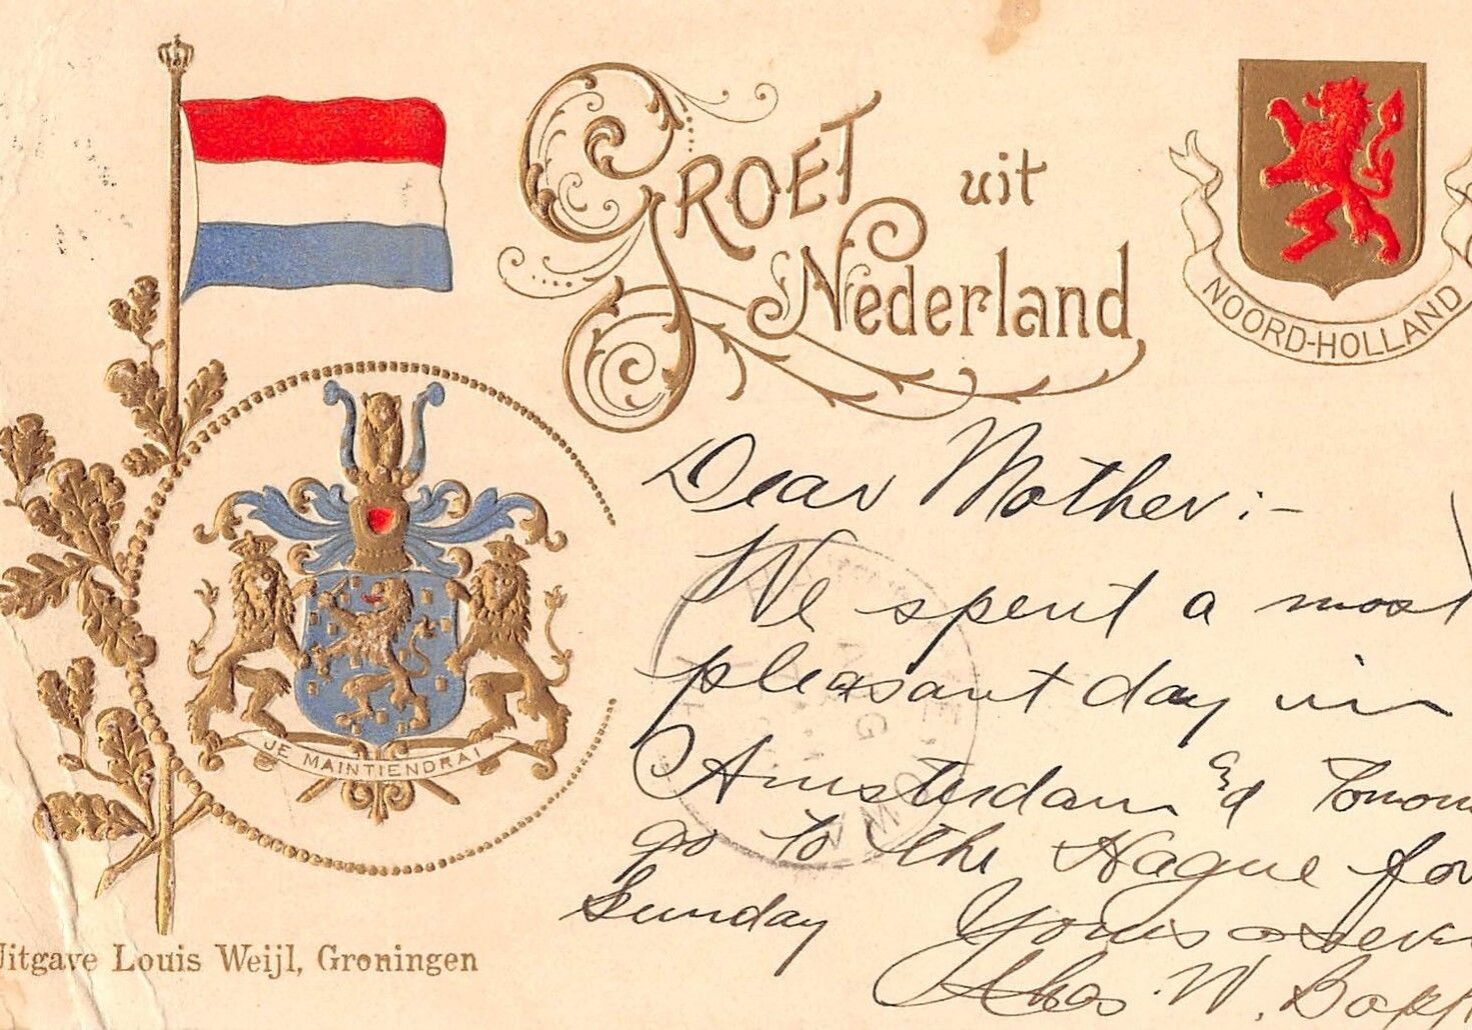 GROET uit
Nederland
NOORD-HOLLAND
JE MAINTIENDRAI
Dear Mother:-
We spent a most
pleasant day in
Amsterdam &
go to the Hague for
Sunday Yours
Chas. W.
Uitgave Louis Weijl, Groningen